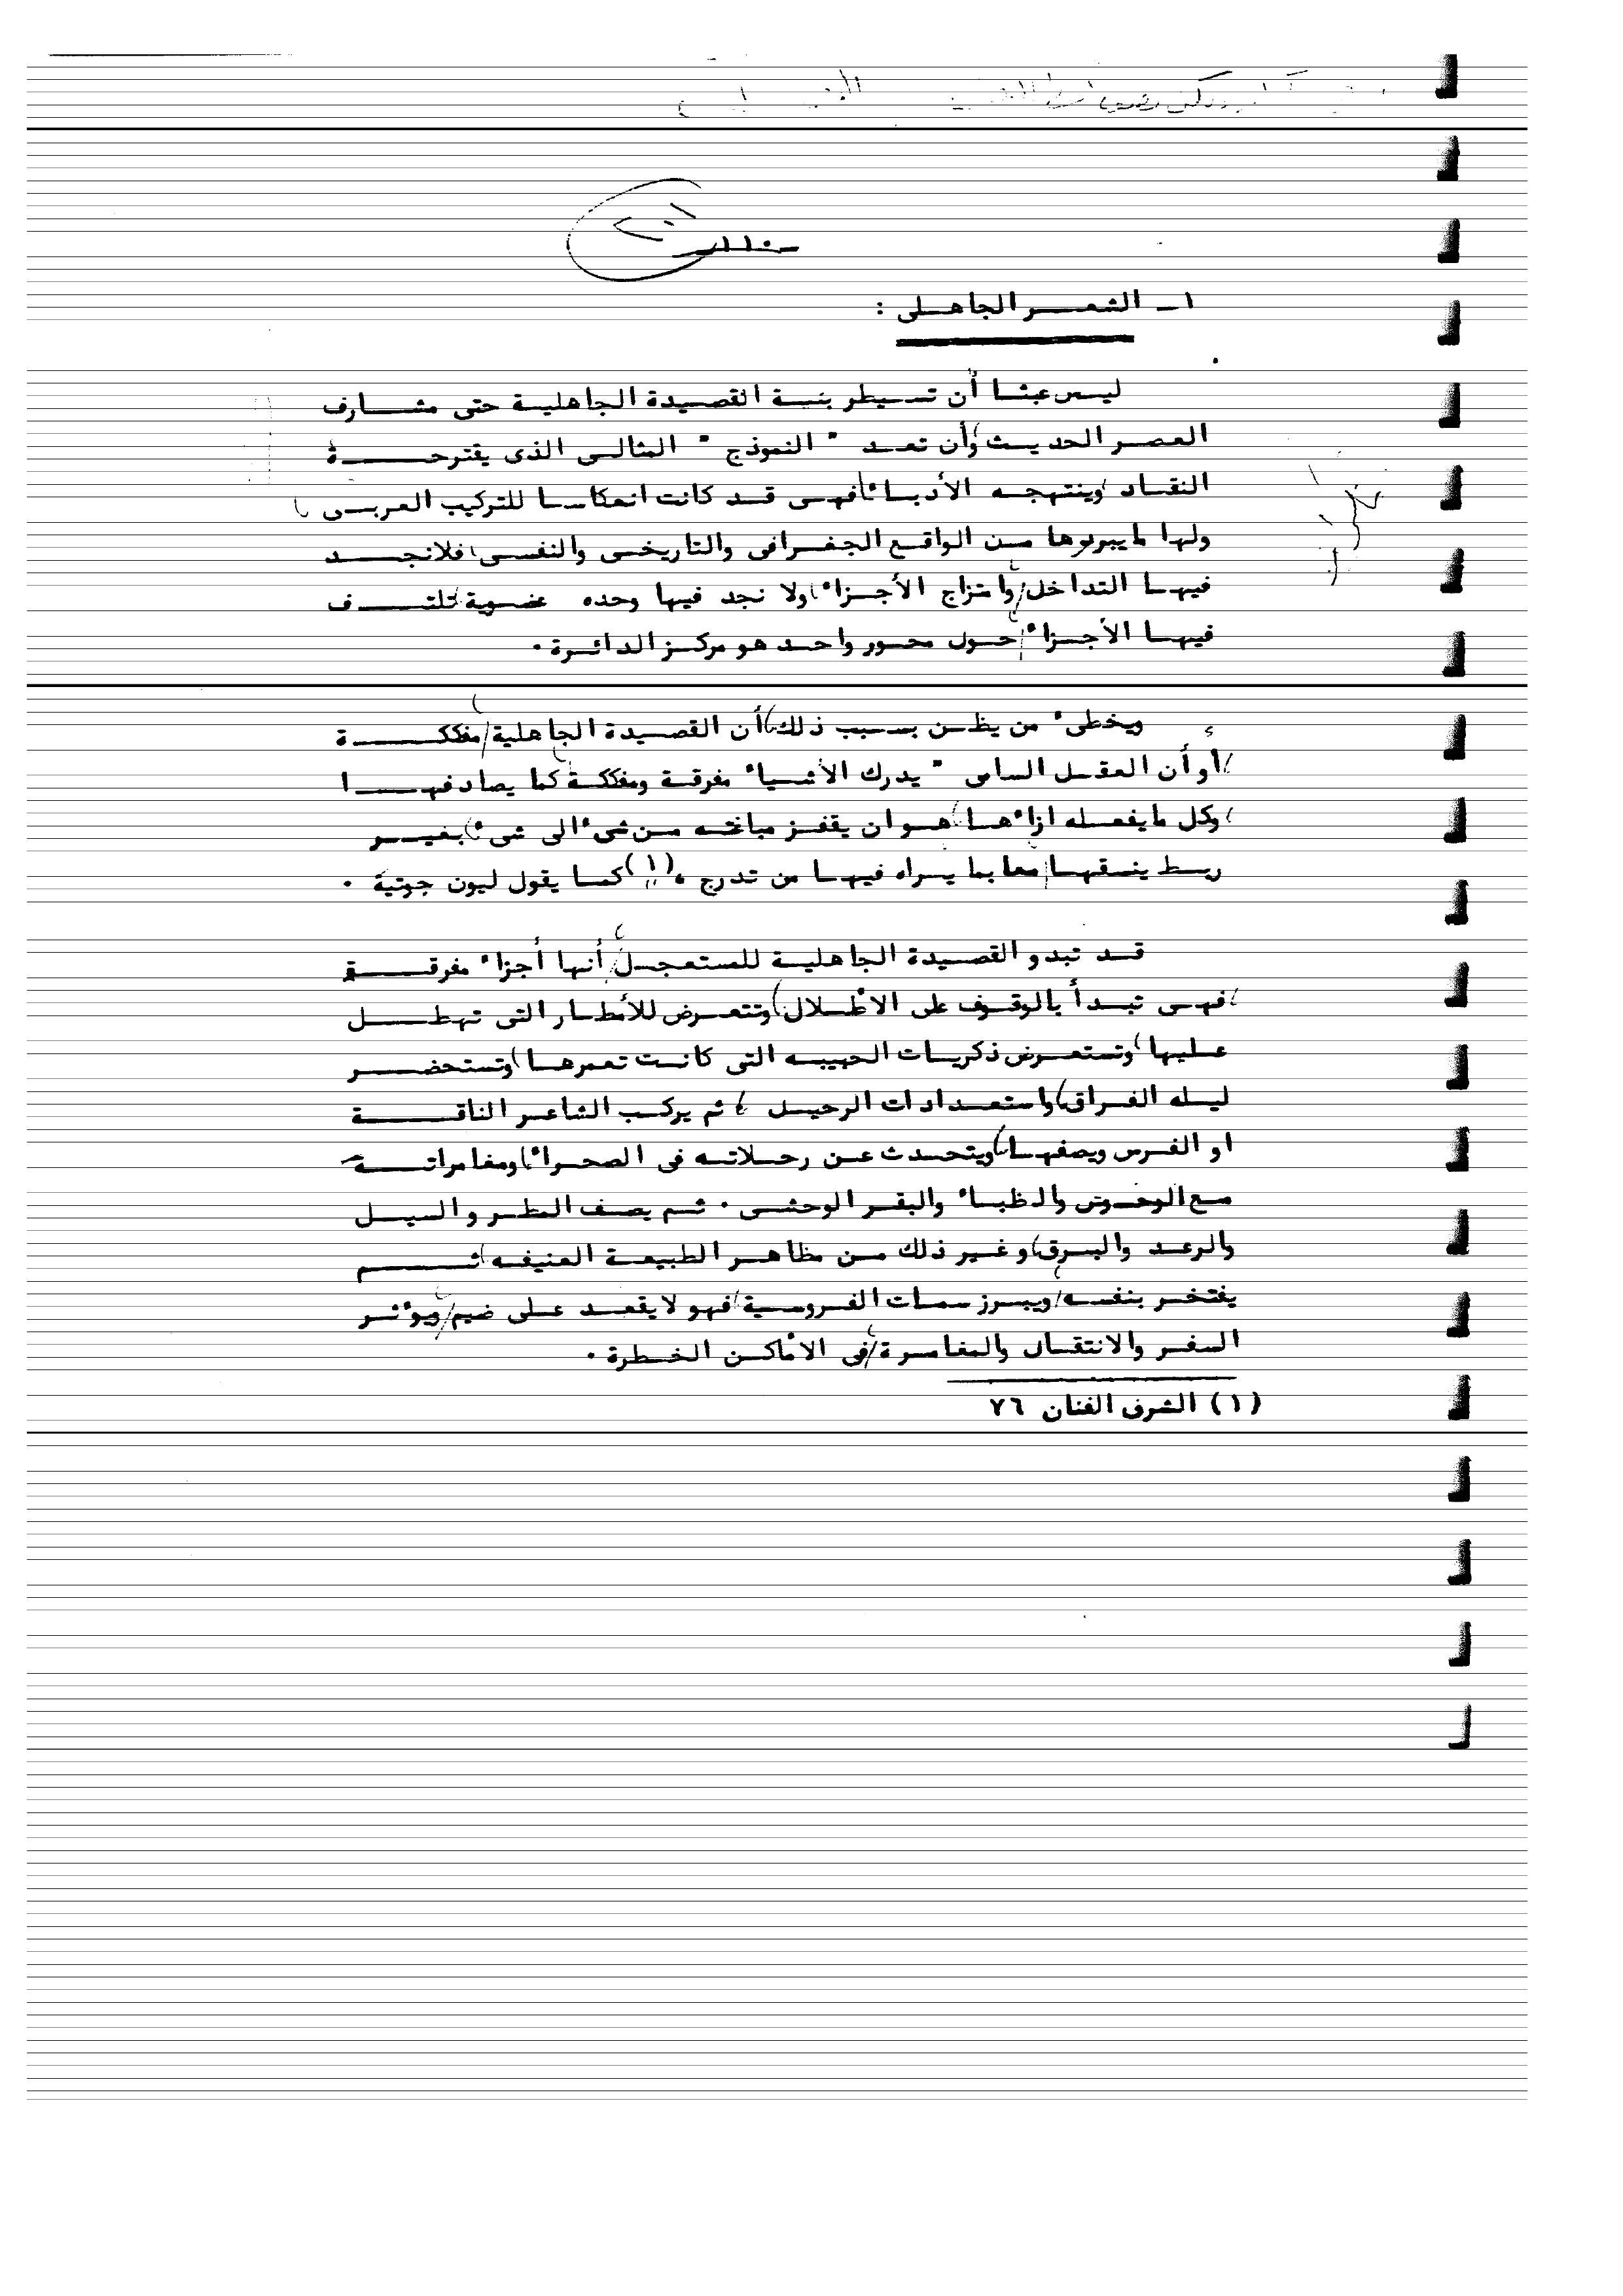 ـ ١١٠ ـ
١ـ الشعـــر الجاهـلى :
ليس عبثا أن تسيطر بنية القصيدة الجاهلية حتى مشارف
العصر الحديث، وأن تعد " النموذج " المثالى الذى يقترحة
النقاد، وينتهجه الأدباء، فهى قد كانت انعكاسا للتركيب العربى،
ولها مايبررها من الواقع الجغرافى والتاريخى والنفسى، فلانجد
فيها التداخل، وامتزاج الأجزاء، ولا نجد فيها وحده عضوية، تلتف
فيها الأجزاء، حول محور واحد هو مركز الدائرة .
ويخطىء من يظن بسبب ذلك، أن القصيدة الجاهلية، مفككة
، أو أن العقل السامى " يدرك الأشياء مفرقة ومفككة، كما يصادفها
، وكل مايفعله ازاءها، هو ان يقفز مباغته من شىء الى شىء، بغير
ربط ينسقها، معا بما يراه فيها من تدرج، (١) كما يقول ليون جوتية .
قد تبدو القصيدة الجاهلية للمستعجل، أنها أجزاء مفرقة
، فهى تبدأ بالوقوف على الاطلال، وتتعرض للأمطار التى تهطل
عليها، وتستعرض ذكريات الحبيبه التى كانت تعمرها، وتستحضر
ليله الفراق، واستعدادات الرحيل، ثم يركب الشاعر الناقة
او الفرس ويصفها، ويتحدث عن رحلاته فى الصحراء، ومغامراتة
مع الوحوش والظباء والبقر الوحشى . ثم يصف المطر والسيل
والرعد والبرق، وغير ذلك من مظاهر الطبيعة العنيفه، ثم
يفتخر بنفسه، ويبرز سمات الفروسية، فهو لايقعد على ضيم، ويؤثر
السفر والانتقال والمغامرة، فى الأماكن الخطرة .
(١) الشرف الفنان ٧٦